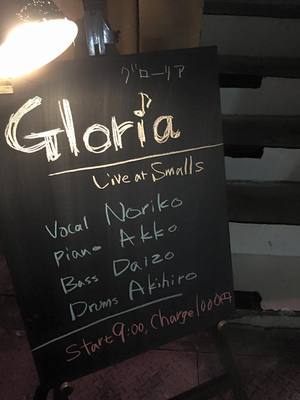 グローリア
Gloria
Live at Smalls
Vocal Noriko
Piano Akko
Bass Daizo
Drums Akihiro
Start 9:00, Charge 1000円